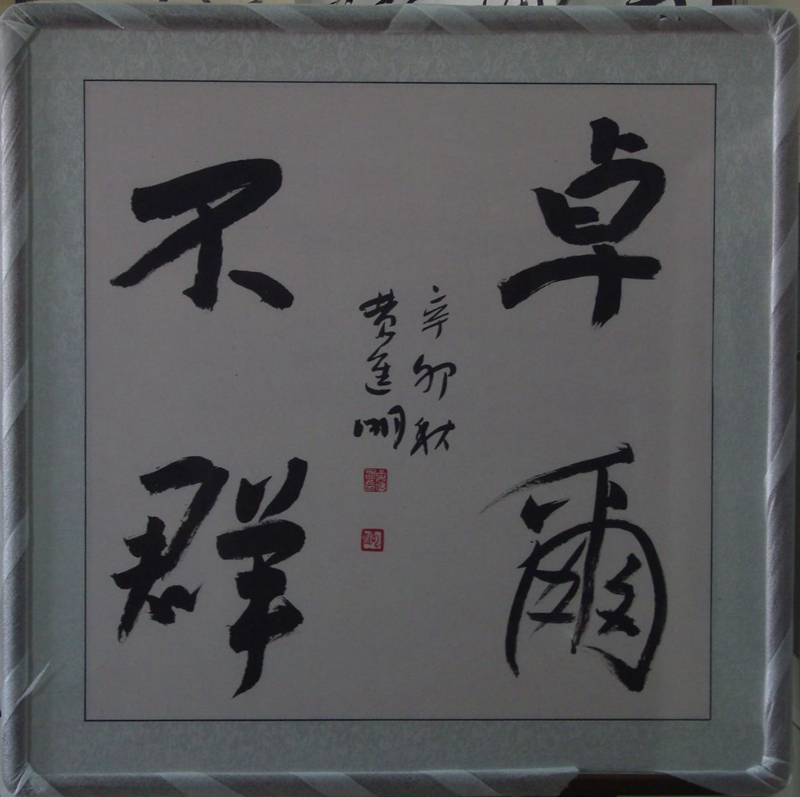 卓爾
不群
辛卯秋
黄進明